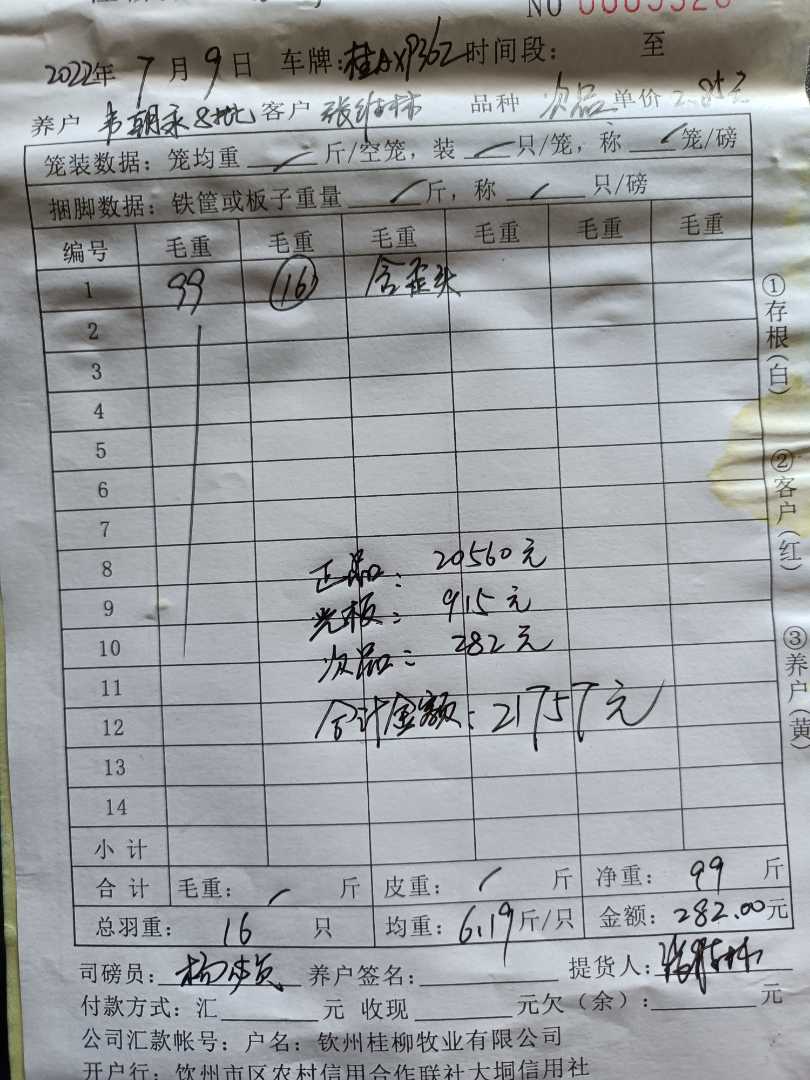 NO 0005320
2022年 7 月 9 日 车牌:桂AXP362 时间段: 至
养户 韦朝禾8批 客户 张维林 品种 次品 单价 2.85元
笼装数据: 笼均重 / 斤/空笼, 装 / 只/笼, 称 / 笼/磅
捆脚数据: 铁筐或板子重量 / 斤, 称 / 只/磅
编号 毛重 毛重 毛重 毛重 毛重 毛重
1 99 16 含歪头
2
3
4
5
6
7
8
9
10
11
12
13
14
正品: 20560元
光板: 915元
次品: 282元
合计金额: 21757元
小计
合计 毛重: / 斤 皮重: / 斤 净重: 99 斤
总羽重: 16 只 均重: 6.19斤/只 金额: 282.00元
司磅员: 养户签名: 提货人: 张维林
付款方式: 汇 元 收现 元欠(余): 元
公司汇款帐号: 户名: 钦州桂柳牧业有限公司
开户行: 钦州市区农村信用合作联社大垌信用社
①存根(白)
②客户(红)
③养户(黄)